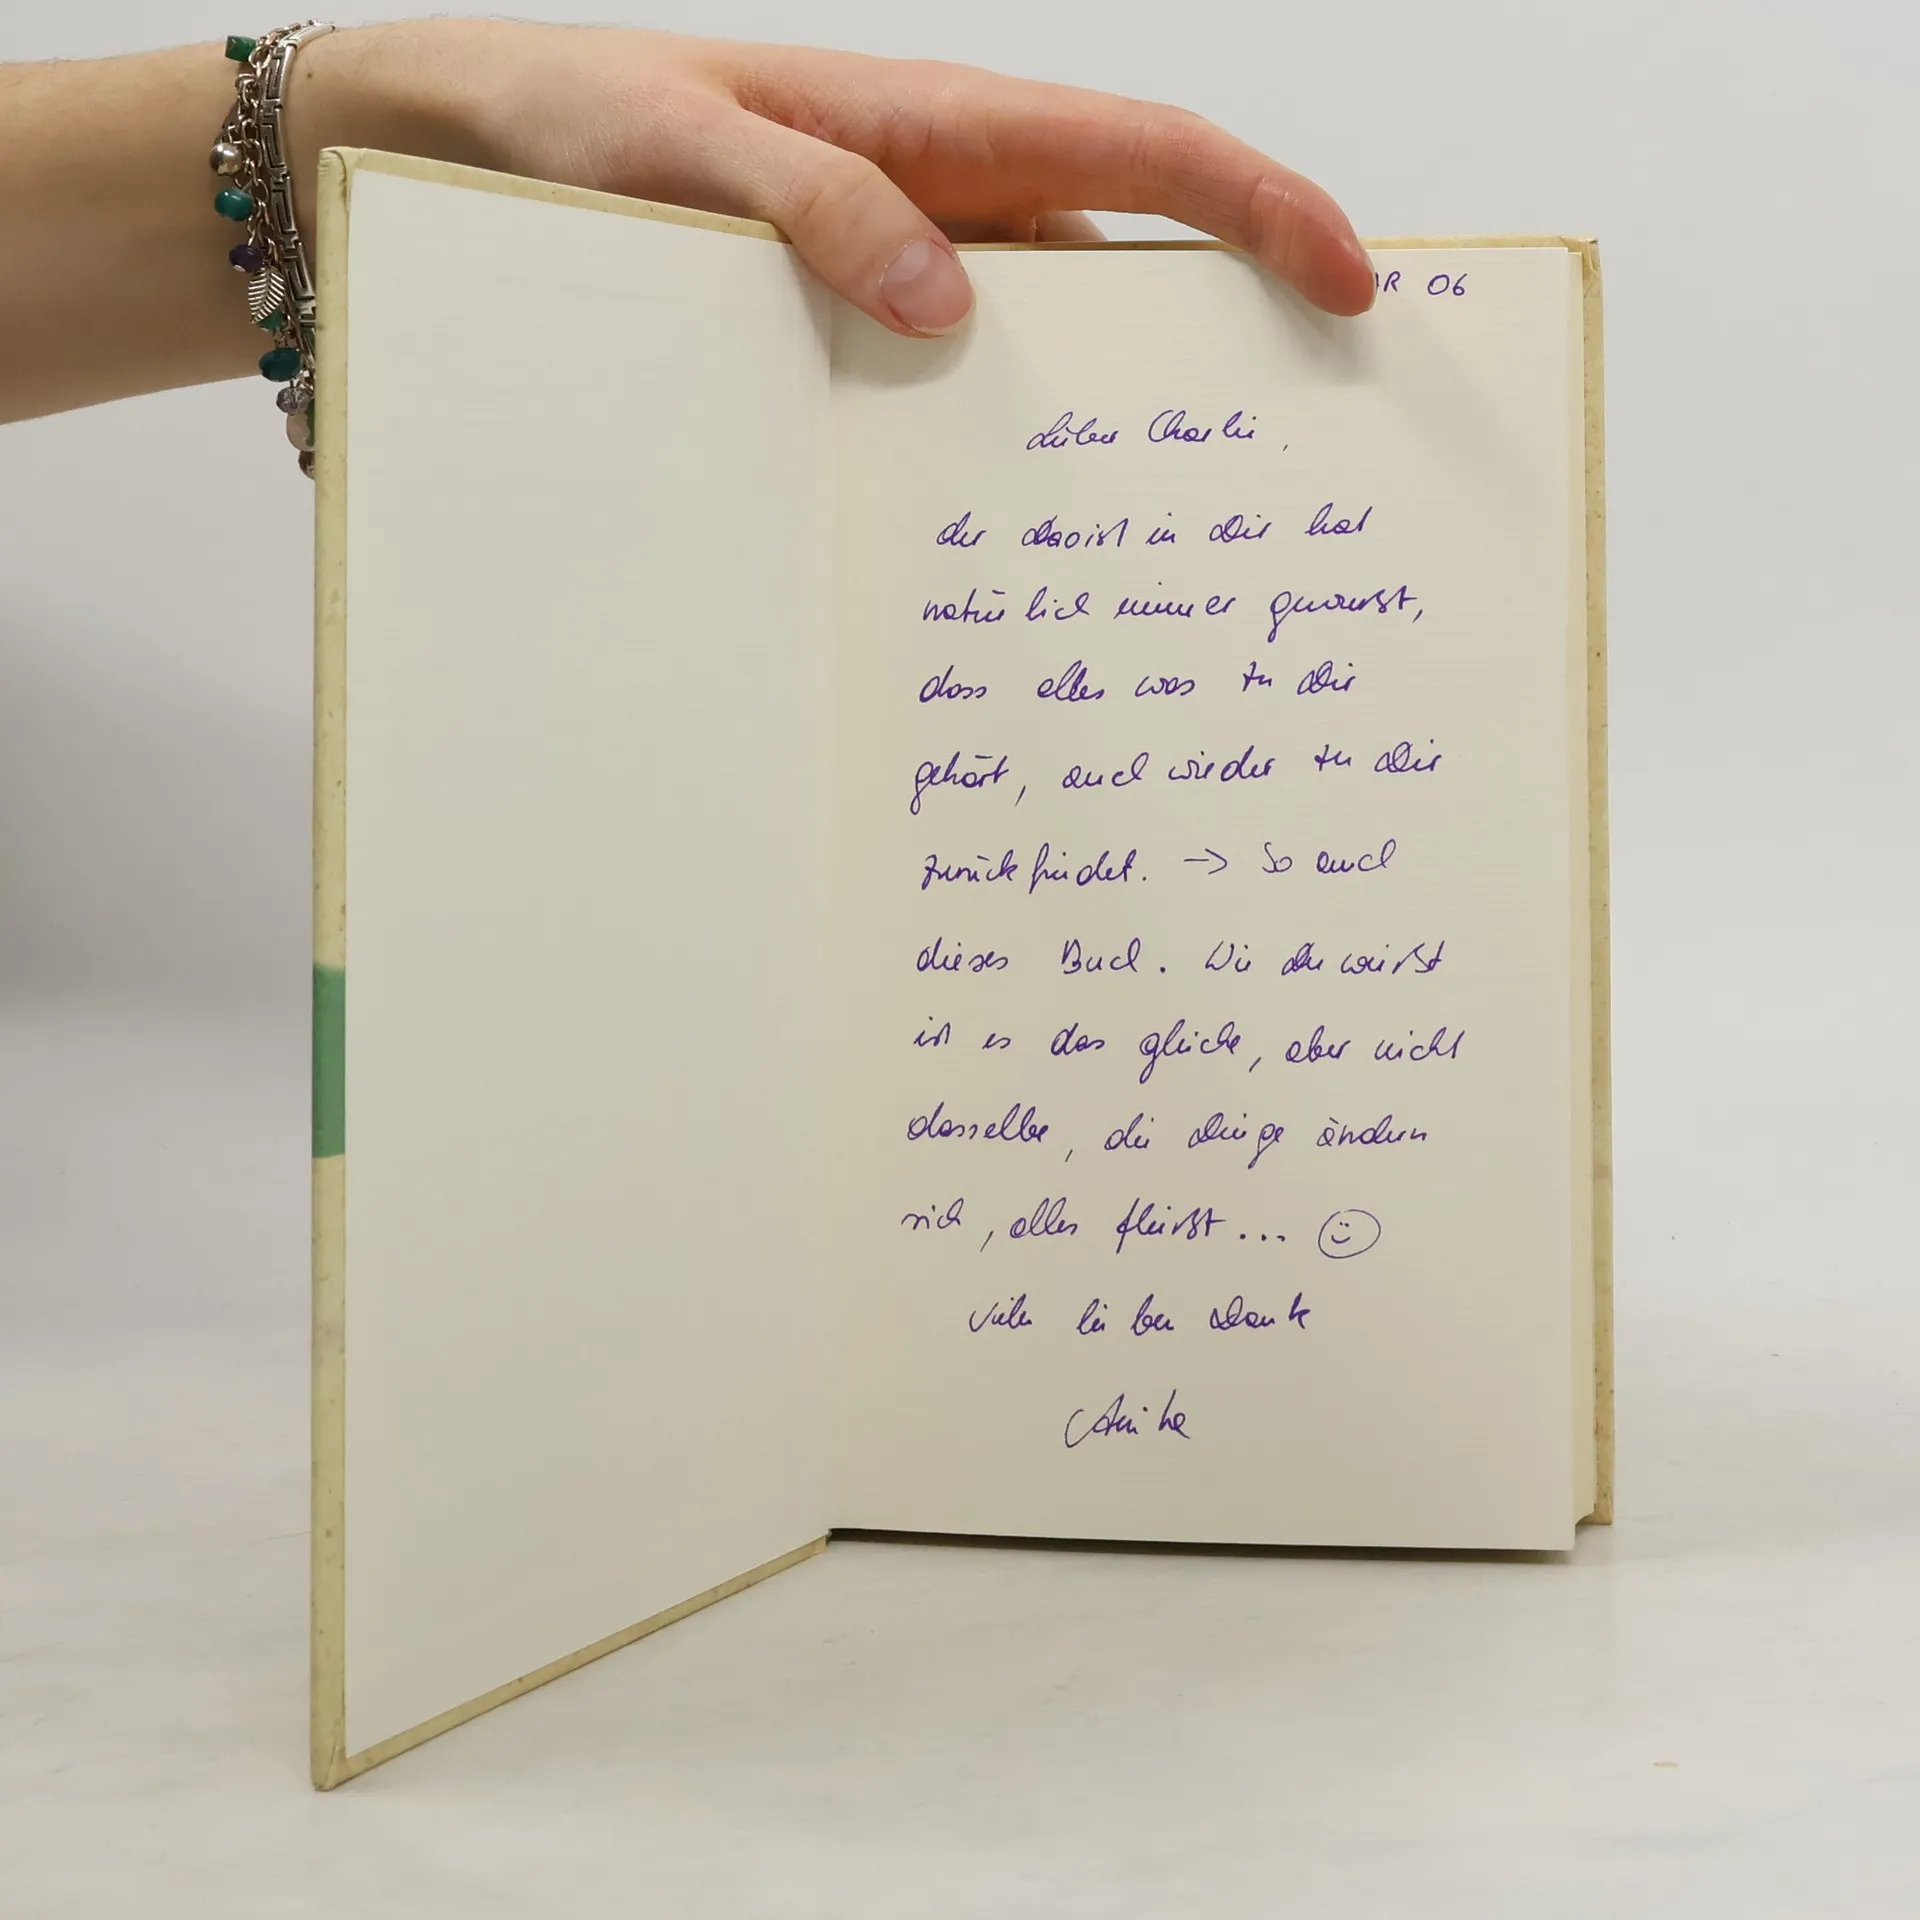 AR 06
Lieber Charlie,
der Daoist in Dir hat
natürlich immer gewußt,
dass alles was zu Dir
gehört, auch wieder zu Dir
zurückfindet. → So auch
dieses Buch. Wie Du weißt
ist es das gleiche, aber nicht
dasselbe, die Dinge ändern
sich, alles fließt... ☺
Vielen lieben Dank
Anika